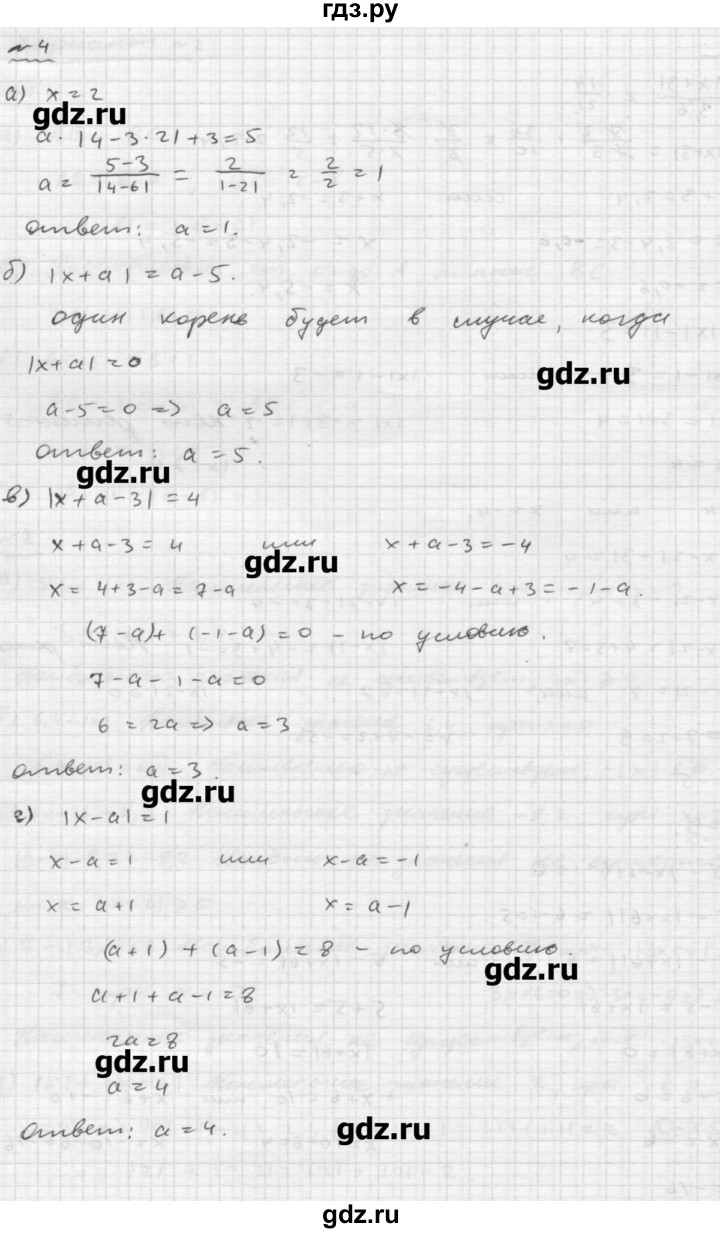 гдз.ру
№4
а) x = 2
gdz.ru
a · |4 - 3 · 2| + 3 = 5
a = \frac{5-3}{|4-6|} = \frac{2}{|-2|} = \frac{2}{2} = 1
ответ: a = 1.
б) |x + a| = a - 5.
один корень будет в случае, когда
|x + a| = 0
gdz.ru
a - 5 = 0 => a = 5
ответ: a = 5.
gdz.ru
в) |x + a - 3| = 4
x + a - 3 = 4 или x + a - 3 = -4
gdz.ru
x = 4 + 3 - a = 7 - a x = -4 - a + 3 = -1 - a.
(7 - a) + (-1 - a) = 0 - по условию.
7 - a - 1 - a = 0
6 = 2a => a = 3
ответ: a = 3.
gdz.ru
г) |x - a| = 1
x - a = 1 или x - a = -1
x = a + 1 x = a - 1
(a + 1) + (a - 1) = 8 - по условию.
gdz.ru
a + 1 + a - 1 = 8
2a = 8
gdz.ru
a = 4
ответ: a = 4.
gdz.ru
gdz.ru